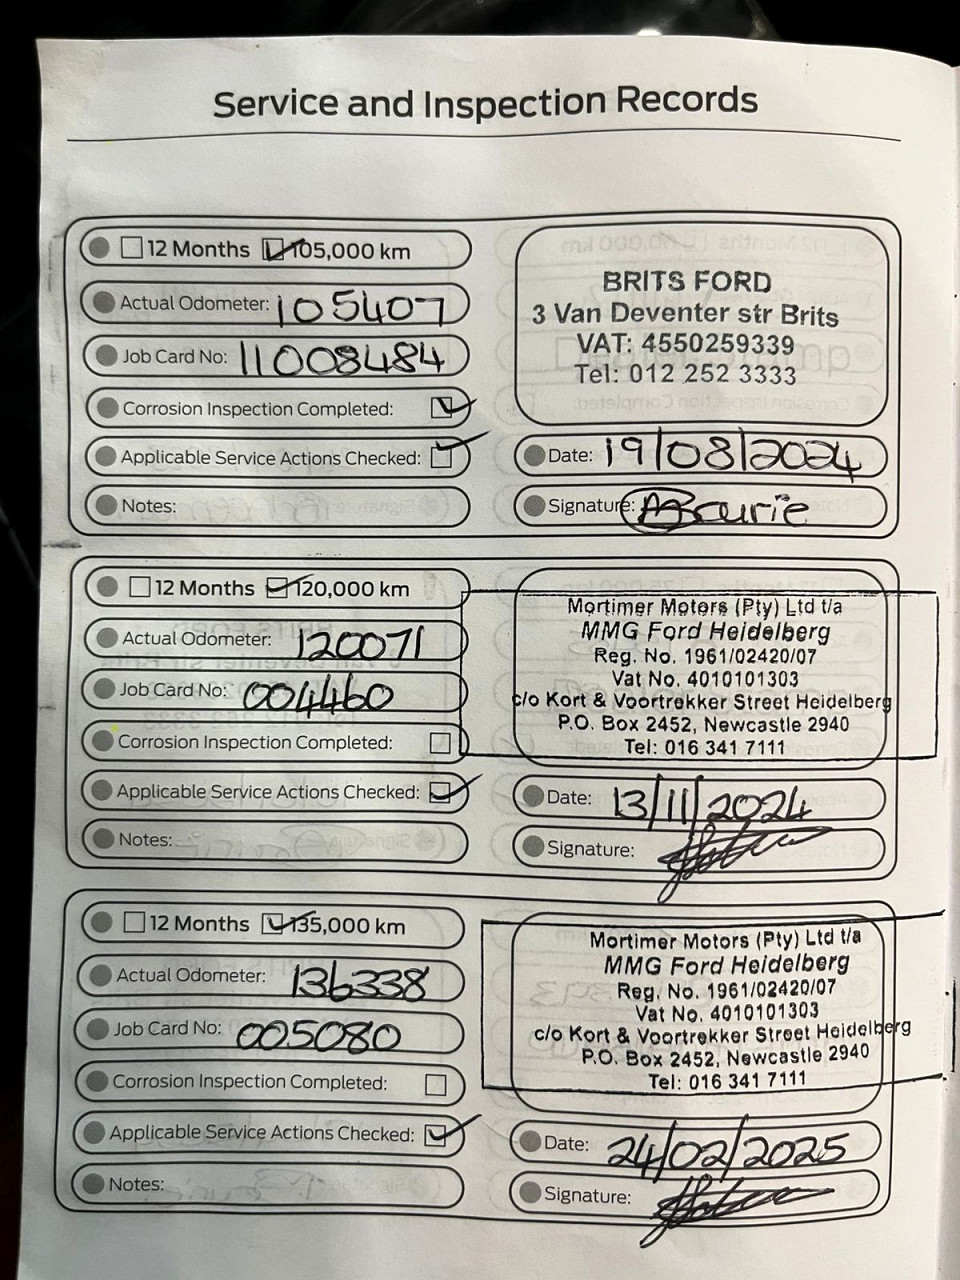 Service and Inspection Records
12 Months 105,000 km
Actual Odometer: 105407
Job Card No: 11008484
Corrosion Inspection Completed:
Applicable Service Actions Checked:
Notes:
BRITS FORD
3 Van Deventer str Brits
VAT: 4550259339
Tel: 012 252 3333
Date: 19/08/2024
Signature:
12 Months 120,000 km
Actual Odometer: 120071
Job Card No: 004460
Corrosion Inspection Completed:
Applicable Service Actions Checked:
Notes:
Mortimer Motors (Pty) Ltd t/a
MMG Ford Heidelberg
Reg. No. 1961/02420/07
Vat No. 4010101303
c/o Kort & Voortrekker Street Heidelberg
P.O. Box 2452, Newcastle 2940
Tel: 016 341 7111
Date: 13/11/2024
Signature:
12 Months 135,000 km
Actual Odometer: 136338
Job Card No: 005080
Corrosion Inspection Completed:
Applicable Service Actions Checked:
Notes:
Mortimer Motors (Pty) Ltd t/a
MMG Ford Heidelberg
Reg. No. 1961/02420/07
Vat No. 4010101303
c/o Kort & Voortrekker Street Heidelberg
P.O. Box 2452, Newcastle 2940
Tel: 016 341 7111
Date: 24/02/2025
Signature: